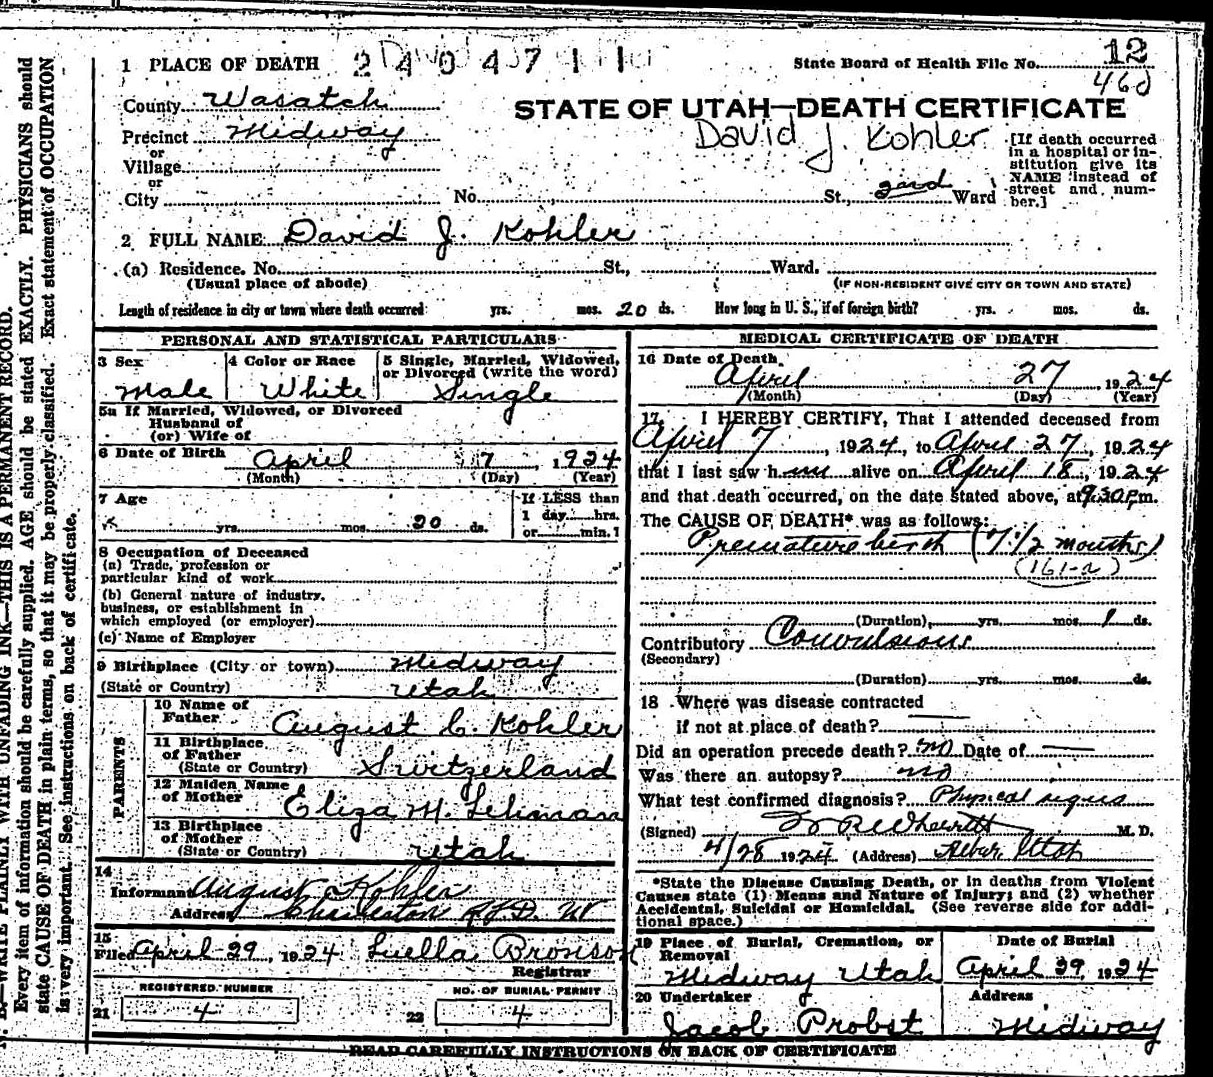 1 PLACE OF DEATH 2404711 State Board of Health File No. 12
460
County Wasatch
STATE OF UTAH—DEATH CERTIFICATE
Precinct Midway
David J. Kohler
or
Village
or
City No. St., Ward
[If death occurred in a hospital or institution give its NAME instead of street and number.]
2 FULL NAME David J. Kohler
(a) Residence. No. St., Ward.
(Usual place of abode) (IF NON-RESIDENT GIVE CITY OR TOWN AND STATE)
Length of residence in city or town where death occurred yrs. mos. 20 ds. How long in U. S., if of foreign birth? yrs. mos. ds.
PERSONAL AND STATISTICAL PARTICULARS
3 Sex 4 Color or Race 5 Single, Married, Widowed, or Divorced (write the word)
Male White Single
5a If Married, Widowed, or Divorced
Husband of
(or) Wife of
6 Date of Birth April 7, 1924
(Month) (Day) (Year)
7 Age If LESS than
1 day hrs.
yrs. mos. 20 ds. or min.?
8 Occupation of Deceased
(a) Trade, profession or
particular kind of work
(b) General nature of industry,
business, or establishment in
which employed (or employer)
(c) Name of Employer
9 Birthplace (City or town) Midway
(State or Country) Utah
PARENTS
10 Name of
Father August C. Kohler
11 Birthplace
of Father
(State or Country) Switzerland
12 Maiden Name
of Mother Eliza M. Lehman
13 Birthplace
of Mother
(State or Country) Utah
14
Informant August Kohler
Address Charleston R.F.D. Ut
15
Filed April 29, 1924 Luella Bronson
Registrar
REGISTERED NUMBER NO. OF BURIAL PERMIT
21 4 22 4
MEDICAL CERTIFICATE OF DEATH
16 Date of Death
April 27, 1924
(Month) (Day) (Year)
17 I HEREBY CERTIFY, That I attended deceased from
April 7, 1924, to April 27, 1924
that I last saw him alive on April 18, 1924
and that death occurred, on the date stated above, at 9:30 p.m.
The CAUSE OF DEATH* was as follows:
Premature birth (7 1/2 months)
(161-a)
(Duration), yrs. mos. 1 ds.
Contributory Convulsions
(Secondary)
(Duration) yrs. mos. ds.
18 Where was disease contracted
if not at place of death?
Did an operation precede death? no Date of
Was there an autopsy? no
What test confirmed diagnosis? Physical signs
(Signed) M. D.
4/28 1924 (Address) Heber, Utah
*State the Disease Causing Death, or in deaths from Violent
Causes state (1) Means and Nature of Injury; and (2) whether
Accidental, Suicidal or Homicidal. (See reverse side for addi-
tional space.)
19 Place of Burial, Cremation, or Date of Burial
Removal
Midway Utah April 29, 1924
20 Undertaker Address
Jacob Probst Midway
READ CAREFULLY INSTRUCTIONS ON BACK OF CERTIFICATE
WRITE PLAINLY WITH UNFADING INK—THIS IS A PERMANENT RECORD.
Every item of information should be carefully supplied. AGE should be stated EXACTLY. PHYSICIANS should
state CAUSE OF DEATH in plain terms, so that it may be properly classified. Exact statement of OCCUPATION
is very important. See instructions on back of certificate.